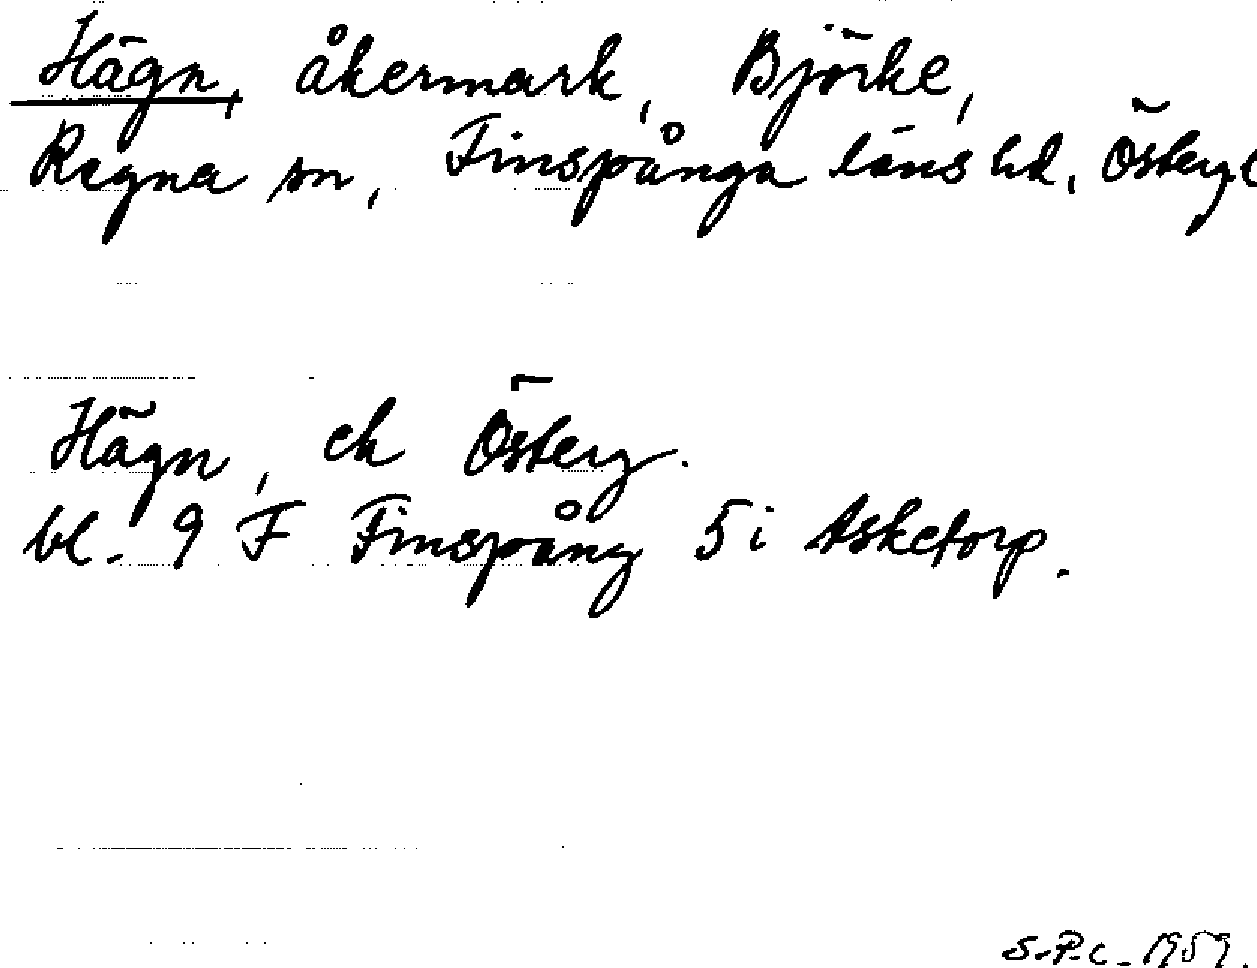 Hägn, åkermark, Björke,
Regna sn, Finspånga läns hd, Östergl
Hägn, ek Österg.
bl. 9 F Finspång 5 i Asketorp.
S.P.C. 1959.